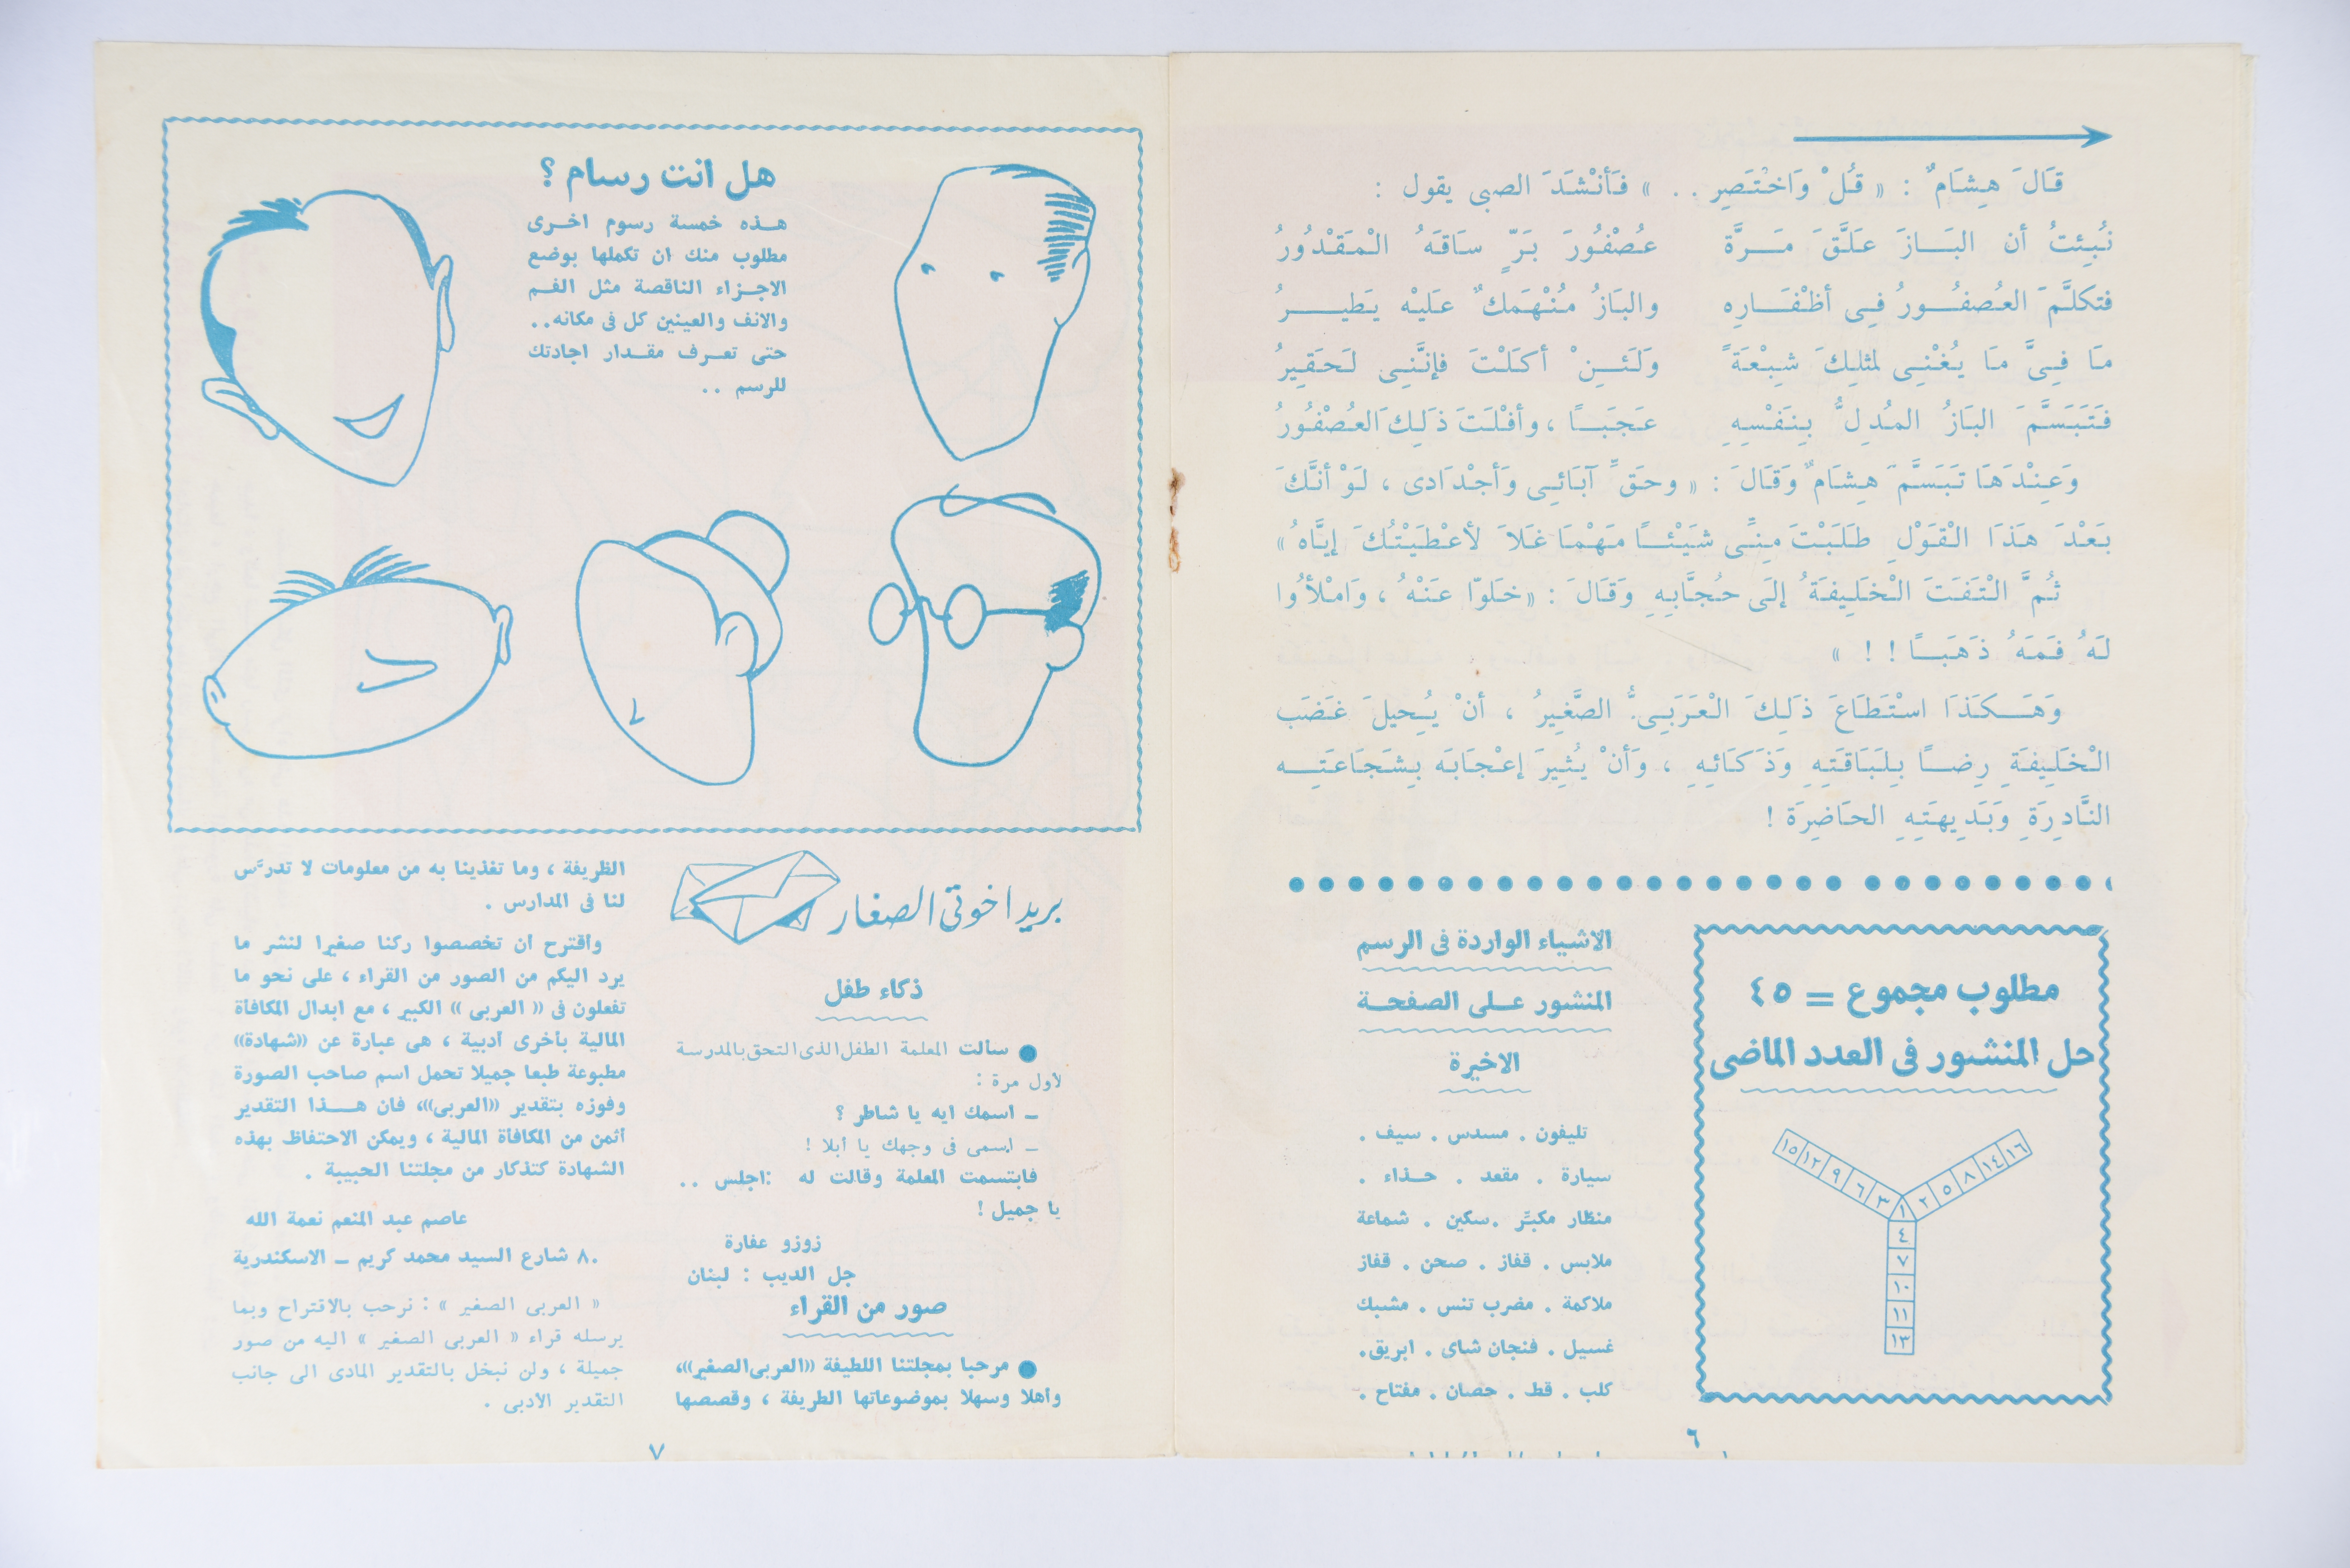 قَالَ هِشَامٌ : « قُلْ وَاخْتَصِرِ . . » فَأَنْشَدَ الصبى يقول :
نُبِئتُ أن البَازَ عَلَّقَ مَرَّة عُصْفُورَ بَرٍّ سَاقَهُ الْمَقْدُورُ
فتكلَّمَ العُصفُورُ فِى أظْفَارِه والبَازُ مُنْهَمكٌ عَليْه يَطيرُ
مَا فِىَّ مَا يُغْنِى لمثلِكَ شِبْعَةً وَلَئِنْ أكَلْتَ فإنَّنِى لَحَقِيرُ
فَتَبَسَّمَ البَازُ المُدِلُّ بِنَفْسِهِ عَجَبًا ، وأفْلَتَ ذَلِكَ العُصْفُورُ
وَعِنْدَهَا تَبَسَّمَ هِشَامٌ وَقَالَ : « وحَقِّ آبَائِى وَأجْدَادى ، لَوْ أنَّكَ
بَعْدَ هَذَا الْقَوْلِ طَلَبْتَ مِنِّى شَيْئًا مَهْمَا غَلاَ لأعْطَيْتُكَ إيَّاهُ »
ثُمَّ الْتَفَتَ الْخَلِيفَةُ إلَى حُجَّابِهِ وَقَالَ : « خَلوّا عَنْهُ ، وَامْلأُوا
لَهُ فَمَهُ ذَهَبًا ! ! »
وَهَكَذَا اسْتَطَاعَ ذَلِكَ الْعَرَبِىُّ الصَّغِيرُ ، أنْ يُحِيلَ غَضَب
الْخَلِيفَةِ رِضًا بِلَبَاقَتِهِ وَذَكَائِهِ ، وَأنْ يُثِيرَ إعْجَابَه بِشَجَاعَتِه
النَّادِرَةِ وَبَدِيهَتِهِ الحَاضِرَة !
مطلوب مجموع = ٤٥
حل المنشور فى العدد الماضى
١٥ ١٢ ٩ ٦ ٣ ١ ٢ ٥ ٨ ١٤ ١٦
٤
٧
١٠
١١
١٣
الاشياء الواردة فى الرسم
المنشور على الصفحة
الاخيرة
تليفون . مسدس . سيف .
سيارة . مقعد . حذاء .
منظار مكبَّر . سكين . شماعة
ملابس . قفاز . صحن . قفاز
ملاكمة . مضرب تنس . مشبك
غسيل . فنجان شاى . ابريق .
كلب . قط . حصان . مفتاح .
٦
هل انت رسام ؟
هذه خمسة رسوم اخرى
مطلوب منك ان تكملها بوضع
الاجزاء الناقصة مثل الفم
والانف والعينين كل فى مكانه ..
حتى تعرف مقدار اجادتك
للرسم ..
بريد اخوتى الصغار
ذكاء طفل
● سألت المعلمة الطفل الذى التحق بالمدرسة
لأول مرة :
ـ اسمك ايه يا شاطر ؟
ـ اسمى فى وجهك يا أبلا !
فابتسمت المعلمة وقالت له : اجلس ..
يا جميل !
زوزو عفارة
جل الديب : لبنان
صور من القراء
● مرحبا بمجلتنا اللطيفة «العربى الصغير»،
وأهلا وسهلا بموضوعاتها الطريفة ، وقصصها
الظريفة ، وما تغذينا به من معلومات لا تدرَّس
لنا فى المدارس .
وأقترح أن تخصصوا ركنا صغيرا لنشر ما
يرد اليكم من الصور من القراء ، على نحو ما
تفعلون فى « العربى » الكبير ، مع ابدال المكافأة
المالية بأخرى أدبية ، هى عبارة عن «شهادة»
مطبوعة طبعا جميلا تحمل اسم صاحب الصورة
وفوزه بتقدير «العربى»، فان هذا التقدير
أثمن من المكافأة المالية ، ويمكن الاحتفاظ بهذه
الشهادة كتذكار من مجلتنا الحبيبة .
عاصم عبد المنعم نعمة الله
٨٠ شارع السيد محمد كريم ـ الاسكندرية
« العربى الصغير » : نرحب بالاقتراح وبما
يرسله قراء « العربى الصغير » اليه من صور
جميلة ، ولن نبخل بالتقدير المادى الى جانب
التقدير الأدبى .
٧